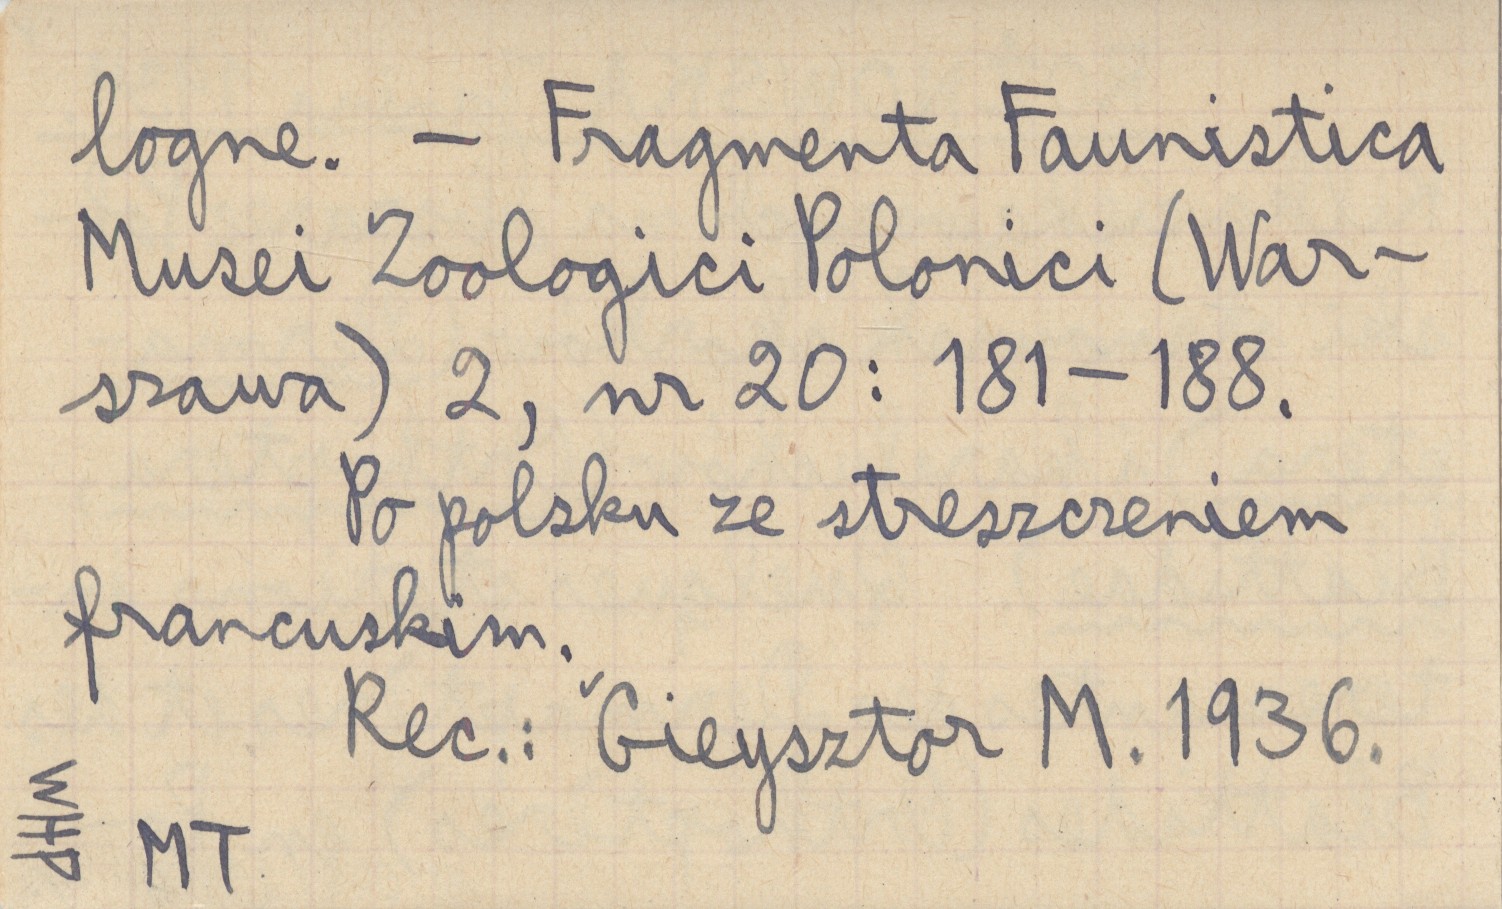 logne. — Fragmenta Faunistica
Musei Zoologici Polonici (War-
szawa) 2, nr 20: 181-188.
Po polsku ze streszczeniem
francuskim.
Rec.: Gieysztor M. 1936.
WHP
MT